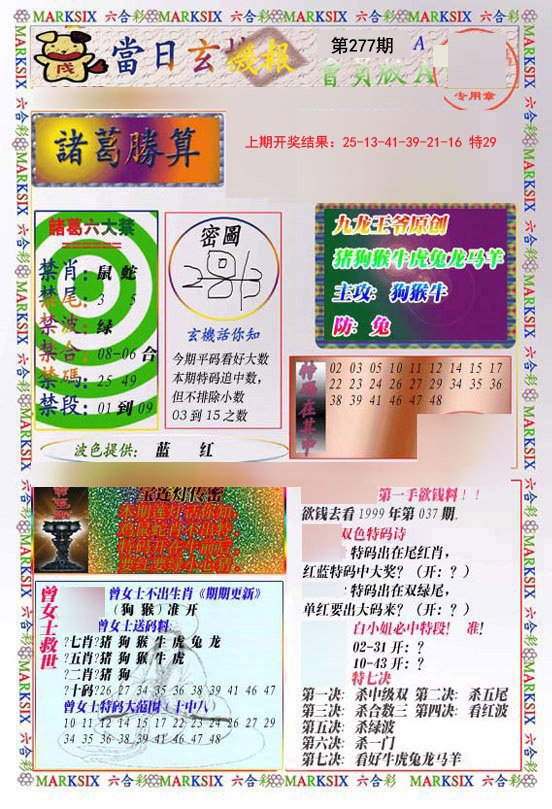 MARKSIX 六合彩 MARKSIX 六合彩 MARKSIX 六合彩 MARKSIX 六合彩
當日玄機報
第277期
會員版A
专用章
諸葛勝算
上期开奖结果：25-13-41-39-21-16 特29
諸葛六大禁
禁肖：鼠 蛇
禁尾：3 5
禁波：绿
禁合：08-06 合
禁碼：25 49
禁段：01 到 09
密圖
玄機話你知
今期平码看好大数
本期特码追中数，
但不排除小数
03 到 15 之数
九龙王爷原创
猪狗猴牛虎兔龙马羊
主攻：狗猴牛
防：兔
特码在其中
02 03 05 10 11 12 14 15 17
22 23 24 26 27 29 34 35 36
38 39 41 46 47 48
波色提供： 蓝 红
宝莲灯传密
第一手欲钱料！！
欲钱去看 1999 年第 037 期.
双色特码诗
特码出在尾红肖，
红蓝特码中大奖？（开：？）
特码出在双绿尾，
单红要出大码来？（开：？）
白小姐必中特段！ 准！
02-31 开：？
10-43 开：？
特七决
第一决：杀中级双 第二决：杀五尾
第三决：杀合数三 第四决：看红波
第五决：杀绿波
第六决：杀一门
第七决：看好牛虎兔龙马羊
曾女士救世
曾女士不出生肖《期期更新》
（狗 猴）准 开
曾女士送码料：
?七肖?猪 狗 猴 牛 虎 兔 龙
?五肖?猪 狗 猴 牛 虎
?二肖?猪 狗
?十码?26 27 34 35 36 38 39 41 46 47
曾女士特码大范围（十中八）
10 11 12 14 15 17 22 23 24 26 27 29
34 35 36 38 39 41 46 47 48
MARKSIX 六合彩 MARKSIX 六合彩 MARKSIX 六合彩 MARKSIX 六合彩